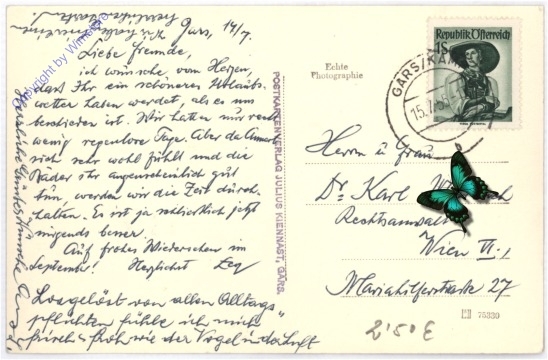 Gars, 14/7.
Liebe Freunde,
ich wünsche, von Herzen,
dass Ihr ein schöneres Urlaubs-
wetter haben werdet, als es uns
beschieden ist. Wir hatten nur
wenig regenlose Tage. Aber da
sich sehr wohl fühlt und die
Bäder ihr augenscheinlich gut
tun, werden wir die Zeit durch-
halten. Es ist ja schließlich jetzt
nirgends besser.
Auf frohes Wiedersehen im
September! Herzlichst
Losgelöst von allen Alltags-
pflichten fühle ich mich
frisch & froh wie der Vogel in der Luft
copyright by
POSTKARTENVERLAG JULIUS KIENNAST, GARS.
Echte
Photographie
Republik Österreich
1S
GARS/KAMP
15.7.
Herrn u. Frau
Dr. Karl
Rechtsanwalt
Wien VI.,
Mariahilferstraße 27
75330
2'50 €